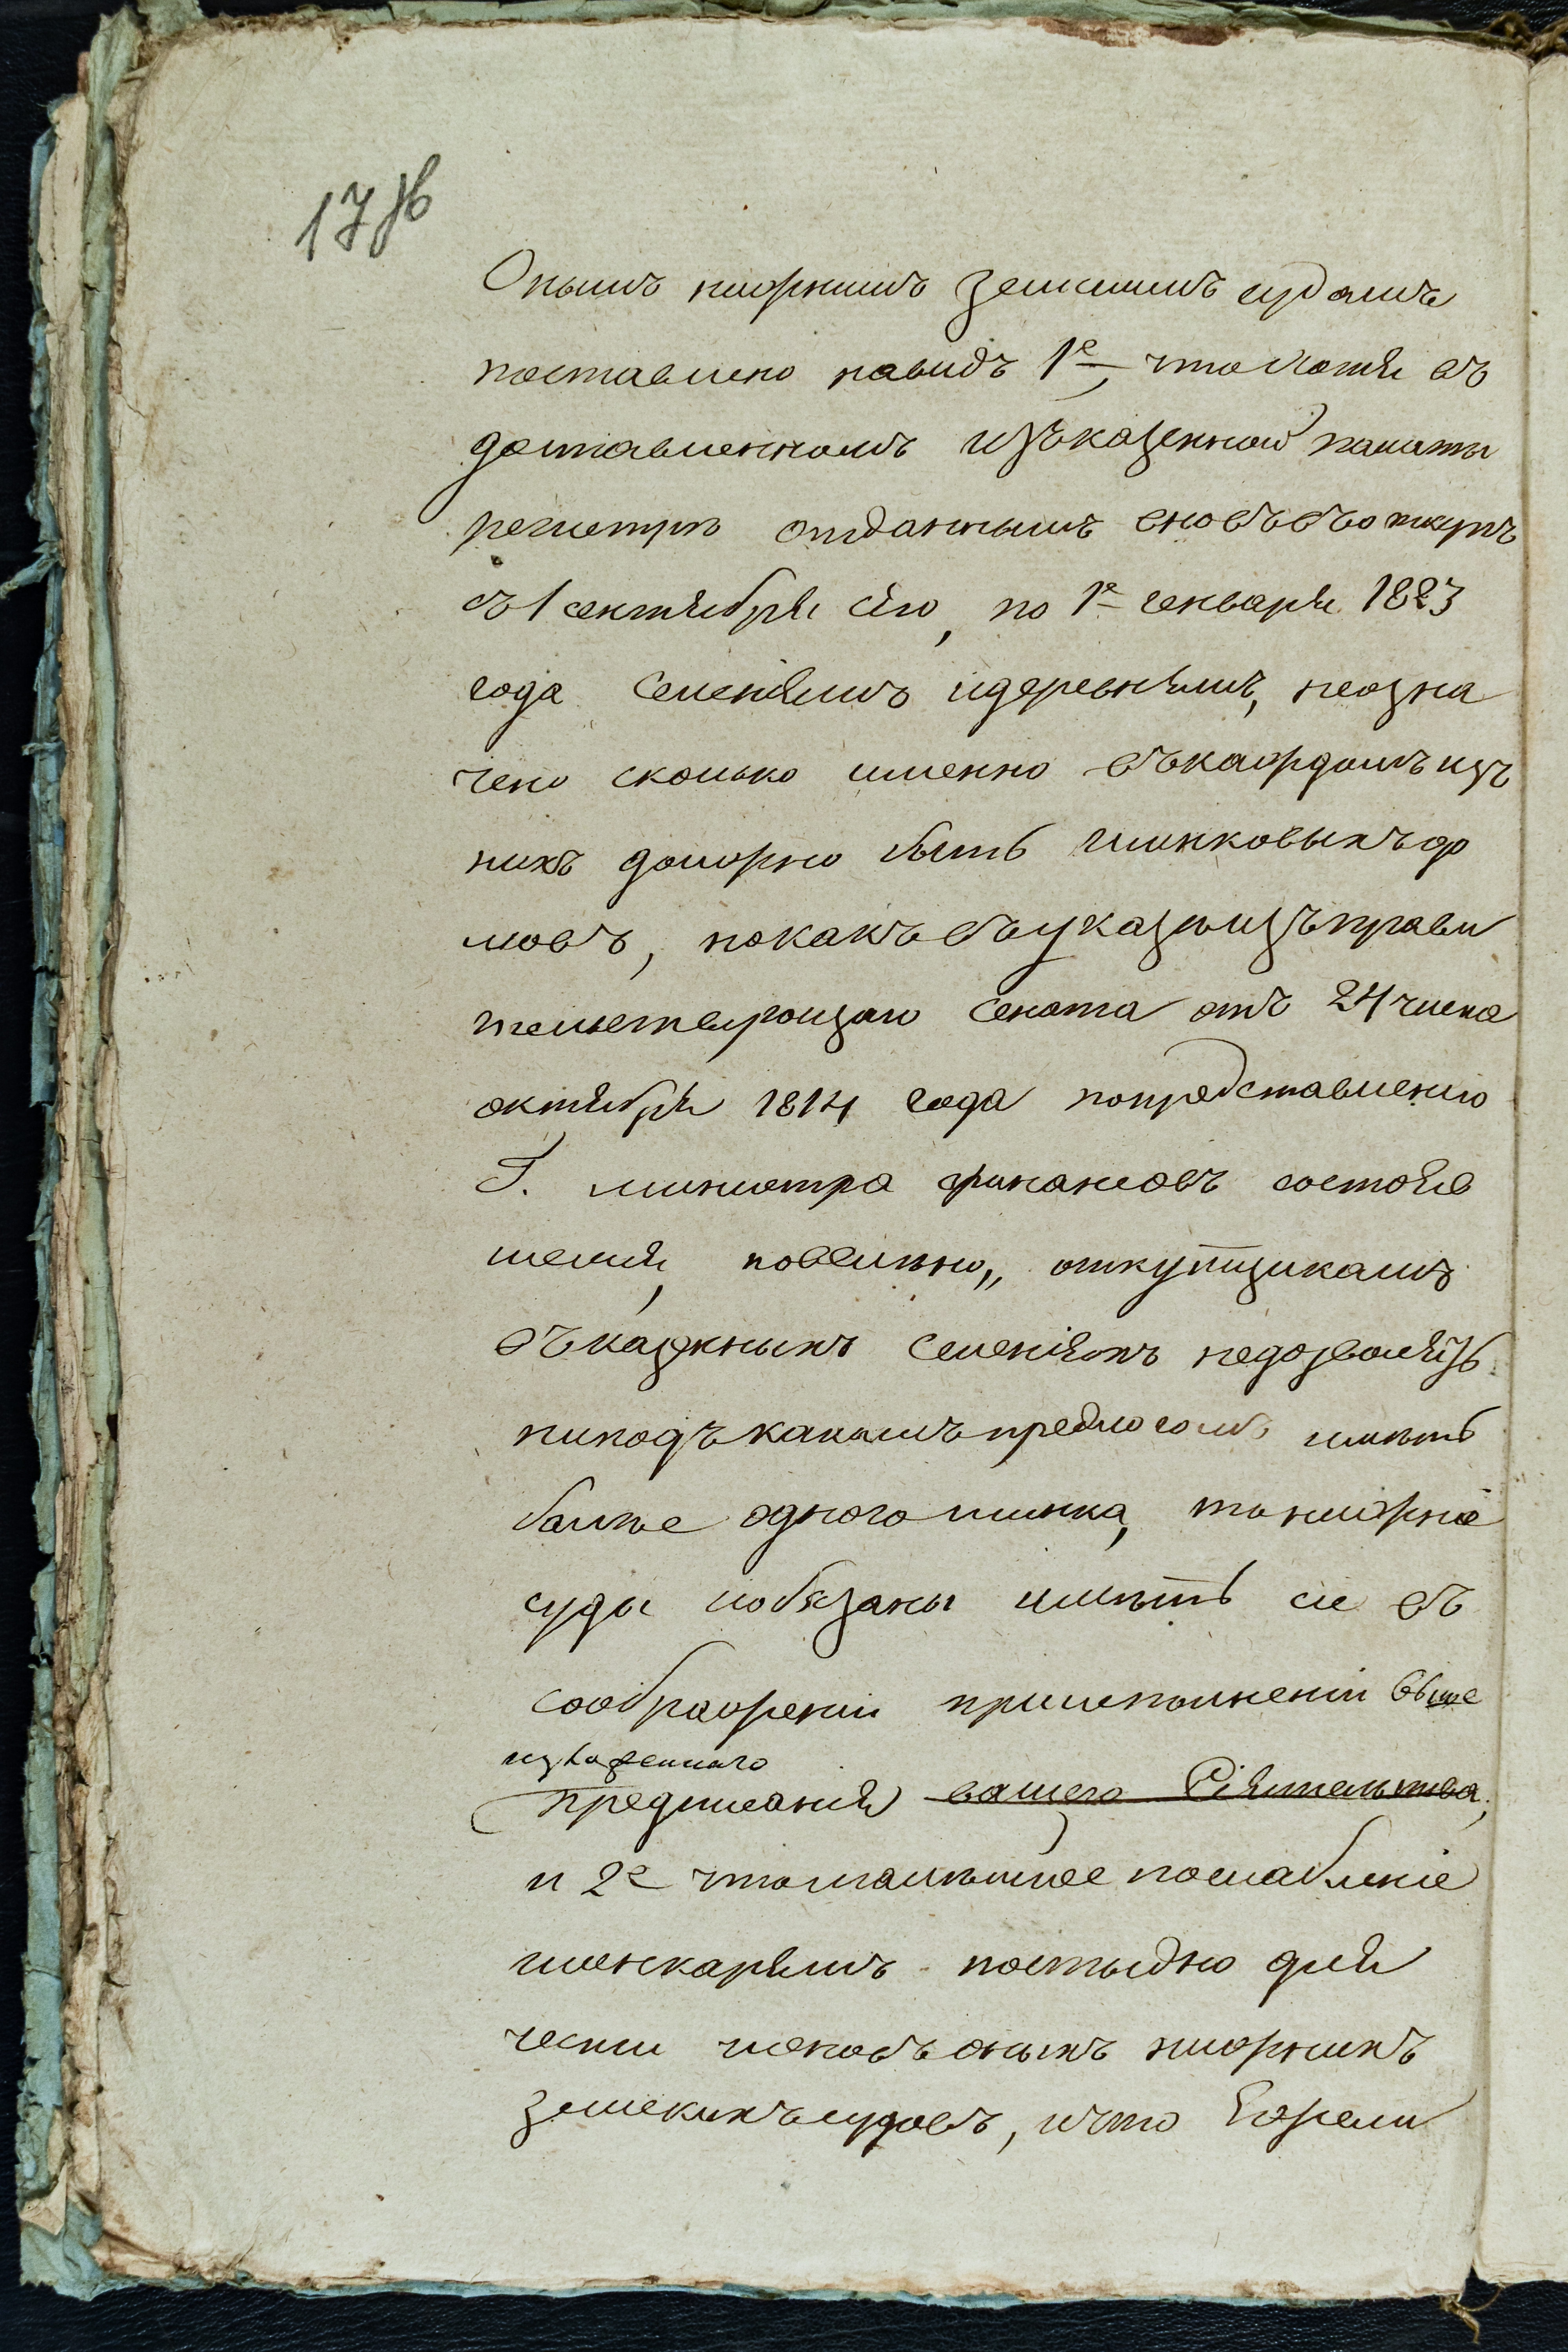 17 об
Онымъ нижнимъ земскимъ судамъ
поставлено навидъ 1е, что хотя въ
доставленномъ изъказенной палаты
регистре отданнымъ вновь въоткупъ
съ 1 сентября сего, по 1е генваря 1823
года селеніямъ идеревнямъ, неозна
чено сколько именно въкаждомъ изъ
нихъ должно быть шинковыхъ до
мовъ, нокакъ въуказе изъправи
тельствующаго Сената отъ 24 числа
октября 1814 года попредставленію
Г. министра финансовъ состояв
шемся, повелѣно,, откупщикамъ
въказенныхъ селеніяхъ недозволять
ниподъ какимъ предлогомъ иметь
болѣе одного шинка, то нижніе
суды иобязаны имѣть сіе въ
соображеніи приисполненіи выше
изъясненнаго
предписанія вашего Сіятельства;
и 2е чтомалѣйшее послабленіе
шинкарямъ постыдно для
чести членовъ оныхъ нижнихъ
земскихъ судовъ, ичто Ежели